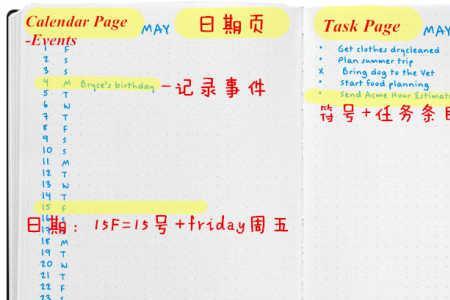 Calendar Page
-Events
MAY
日期页
1 F
2 S
3 S
4 M Bryce's birthday -记录事件
5 T
6 W
7 T
8 F
9 S
10 S
11 M
12 T
13 W
14 T
15 F
16 S
日期: 15F=15号+friday周五
17 S
18 M
19 T
20 W
21 T
22 F
23 S
Task Page
MAY
• Get clothes drycleaned
• Plan summer trip
x Bring dog to the Vet
• Start food planning
• Send Acme Hour Estimat
符号+任务条目